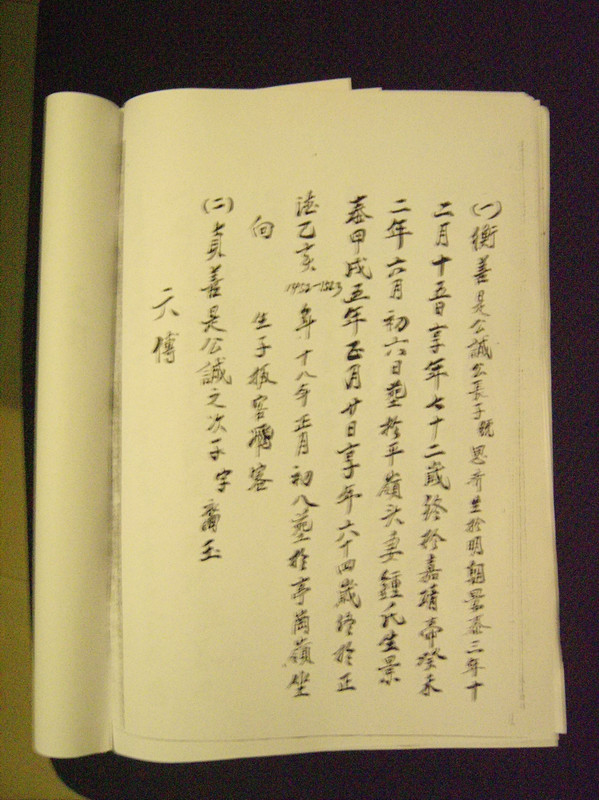 (一)衡善是公誠公長子號思齊生於明朝景泰三年十
二月十五日享年七十二歲終於嘉靖帝癸未
二年六月初六日塟於平嶺头妻鍾氏生景
泰甲戌五年正月廿日享年六十四歲終於正
德乙亥1452-1523年十八年正月初八塟於亭崗嶺坐
向 生子振容 容
(二)貞善是公誠之次子字 玉
六傳